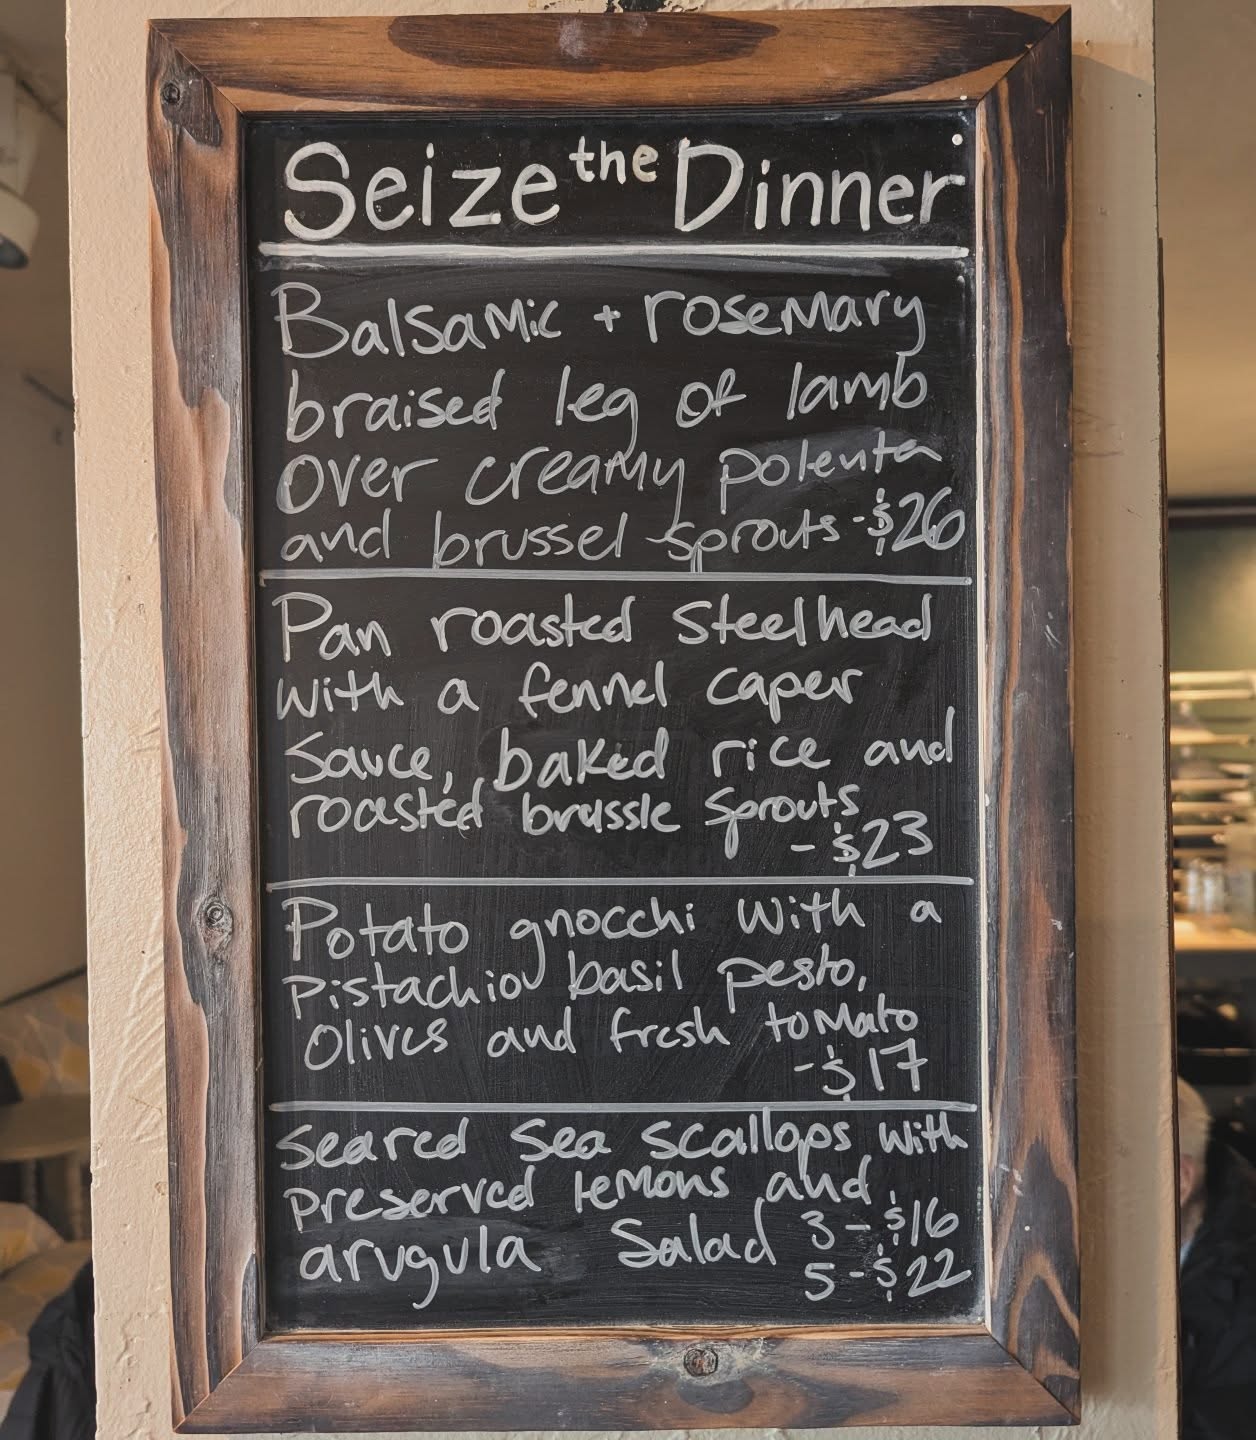 Seize the Dinner
Balsamic + rosemary
braised leg of lamb
over creamy polenta
and brussel sprouts - $26
Pan roasted Steelhead
with a fennel caper
sauce, baked rice and
roasted brussle sprouts
- $23
Potato gnocchi with a
pistachio basil pesto,
Olives and fresh tomato
- $17
seared Sea scallops with
preserved lemons and
arugula Salad 3 - $16
5 - $22